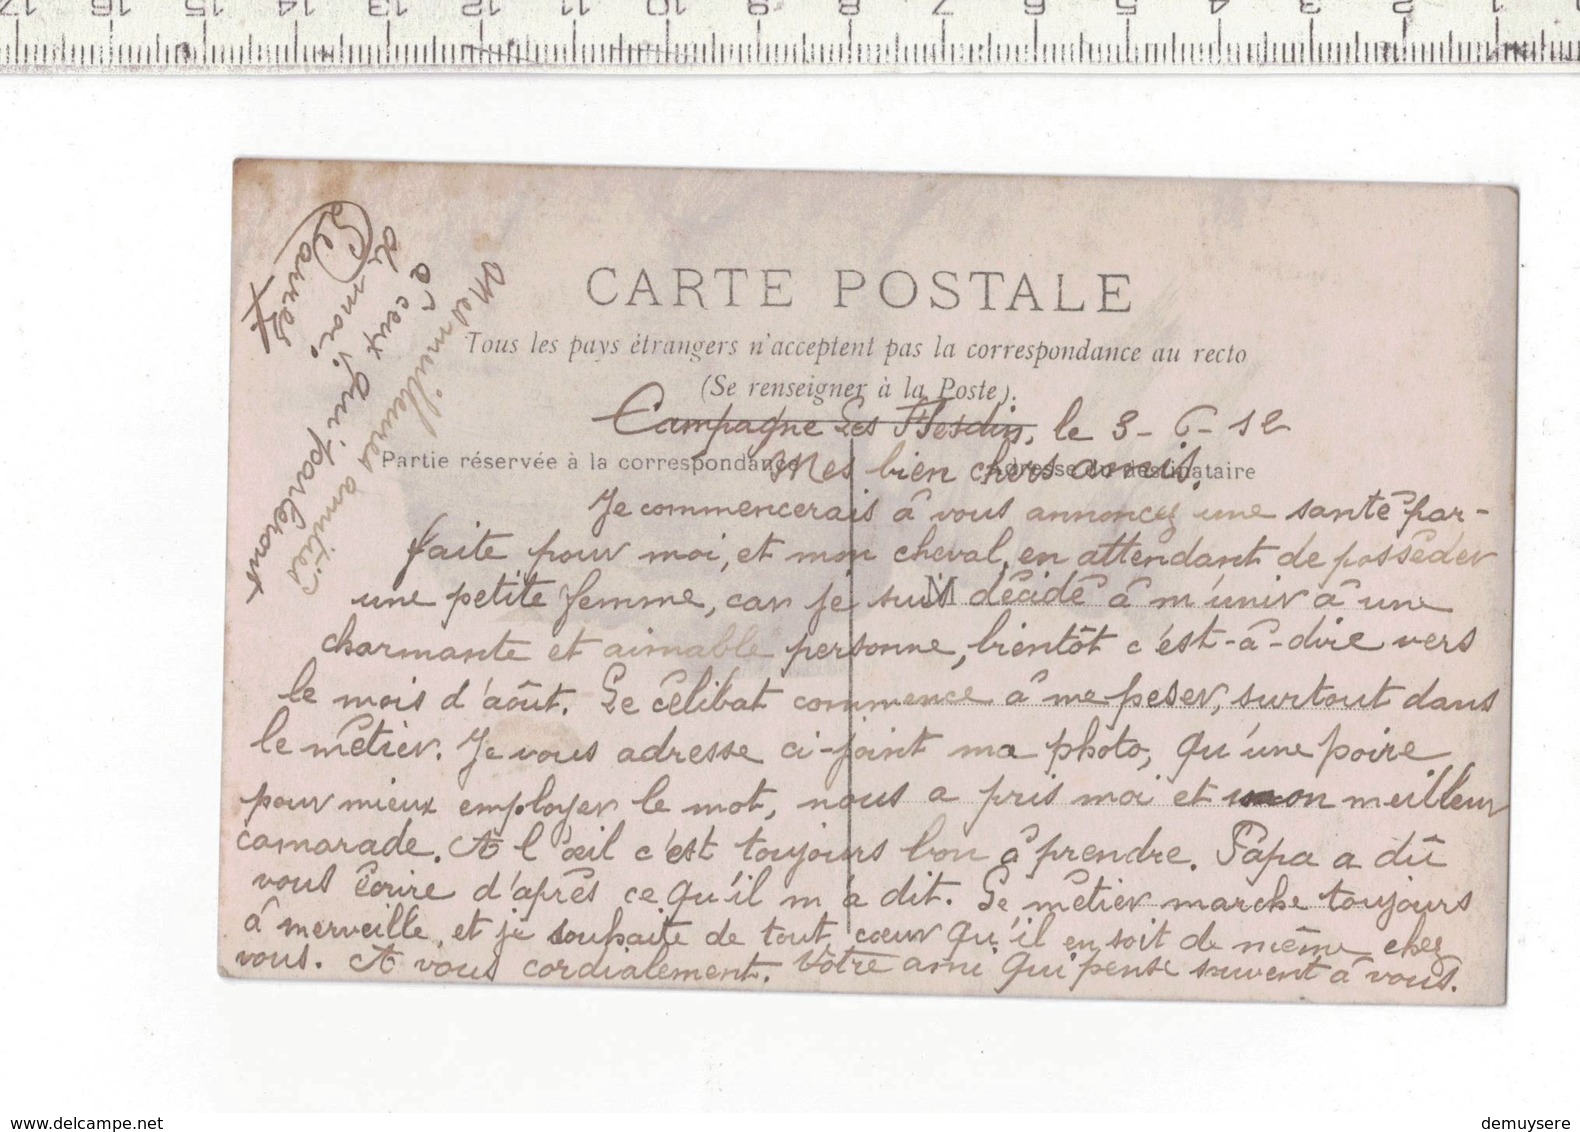 17 16 15 14 13 12 11 10 9 8 7 6 5 4 3 2 1
CARTE POSTALE
Tous les pays étrangers n'acceptent pas la correspondance au recto
(Se renseigner à la Poste).
Partie réservée à la correspondance
Adresse du destinataire
M
Campagne Les Hesdin, le 3-6-12
Mes bien chers amis.
Je commencerais à vous annoncez une santé par-
faite pour moi, et mon cheval, en attendant de posséder
une petite femme, car je suis décidé à m'unir à une
charmante et aimable personne, bientôt c'est-à-dire vers
le mois d'août. Le célibat commence à me peser, surtout dans
le métier. Je vous adresse ci-joint ma photo, qu'une poire
pour mieux employer le mot, nous a pris moi et mon meilleur
camarade. A l'œil c'est toujours bon à prendre. Papa a dû
vous écrire d'après ce qu'il m'a dit. Le métier marche toujours
à merveille, et je souhaite de tout cœur qu'il en soit de même chez
vous. A vous cordialement. Votre ami qui pense souvent à vous.
Mes meilleures amitiés
à ceux qui parleront
de moi.
www.delcampe.net
demuysere